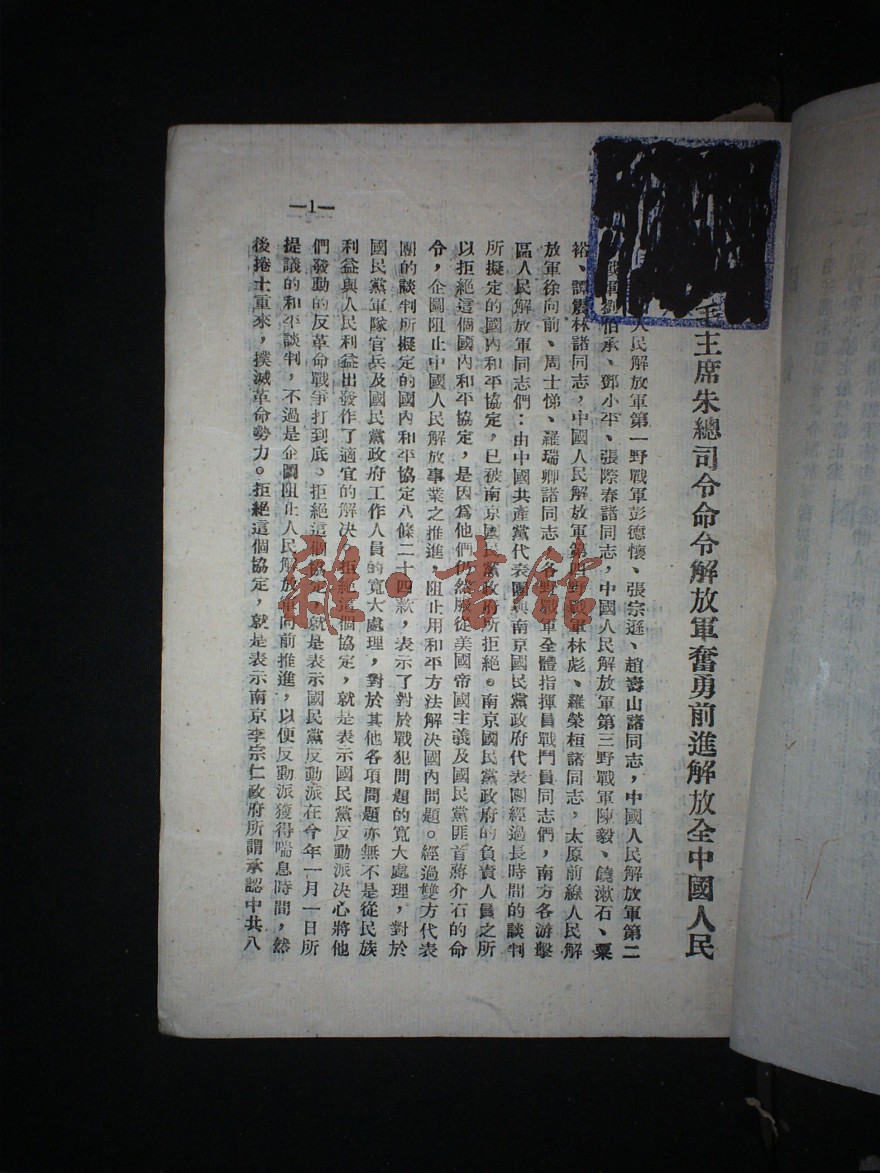 毛主席朱總司令命令解放軍奮勇前進解放全中國人民
人民解放軍第一野戰軍彭德懷、張宗遜、趙壽山諸同志，中國人民解放軍第二
戰軍劉伯承、鄧小平、張際春諸同志，中國人民解放軍第三野戰軍陳毅、饒漱石、粟
裕、譚震林諸同志，中國人民解放軍第四野戰軍林彪、羅榮桓諸同志，太原前線人民解
放軍徐向前、周士悌、羅瑞卿諸同志，各野戰軍全體指揮員戰鬥員同志們，南方各游擊
區人民解放軍同志們：由中國共產黨代表團與南京國民黨政府代表團經過長時間的談判
所擬定的國內和平協定，已被南京國民黨政府所拒絕。南京國民黨政府的負責人員之所
以拒絕這個國內和平協定，是因為他們仍然服從美國帝國主義及國民黨匪首蔣介石的命
令，企圖阻止中國人民解放事業之推進，阻止用和平方法解決國內問題。經過雙方代表
團的談判所擬定的國內和平協定八條二十四款，表示了對於戰犯問題的寬大處理，對於
國民黨軍隊官兵及國民黨政府工作人員的寬大處理，對於其他各項問題亦無不是從民族
利益與人民利益出發作了適宜的解決，拒絕這個協定，就是表示國民黨反動派决心將他
們發動的反革命戰爭打到底。拒絕這個協定，就是表示國民黨反動派在今年一月一日所
提議的和平談判，不過是企圖阻止人民解放軍向前推進，以便反動派獲得喘息時間，然
後捲土重來，撲滅革命勢力。拒絕這個協定，就是表示南京李宗仁政府所謂承認中共八
—1—
雜·書館